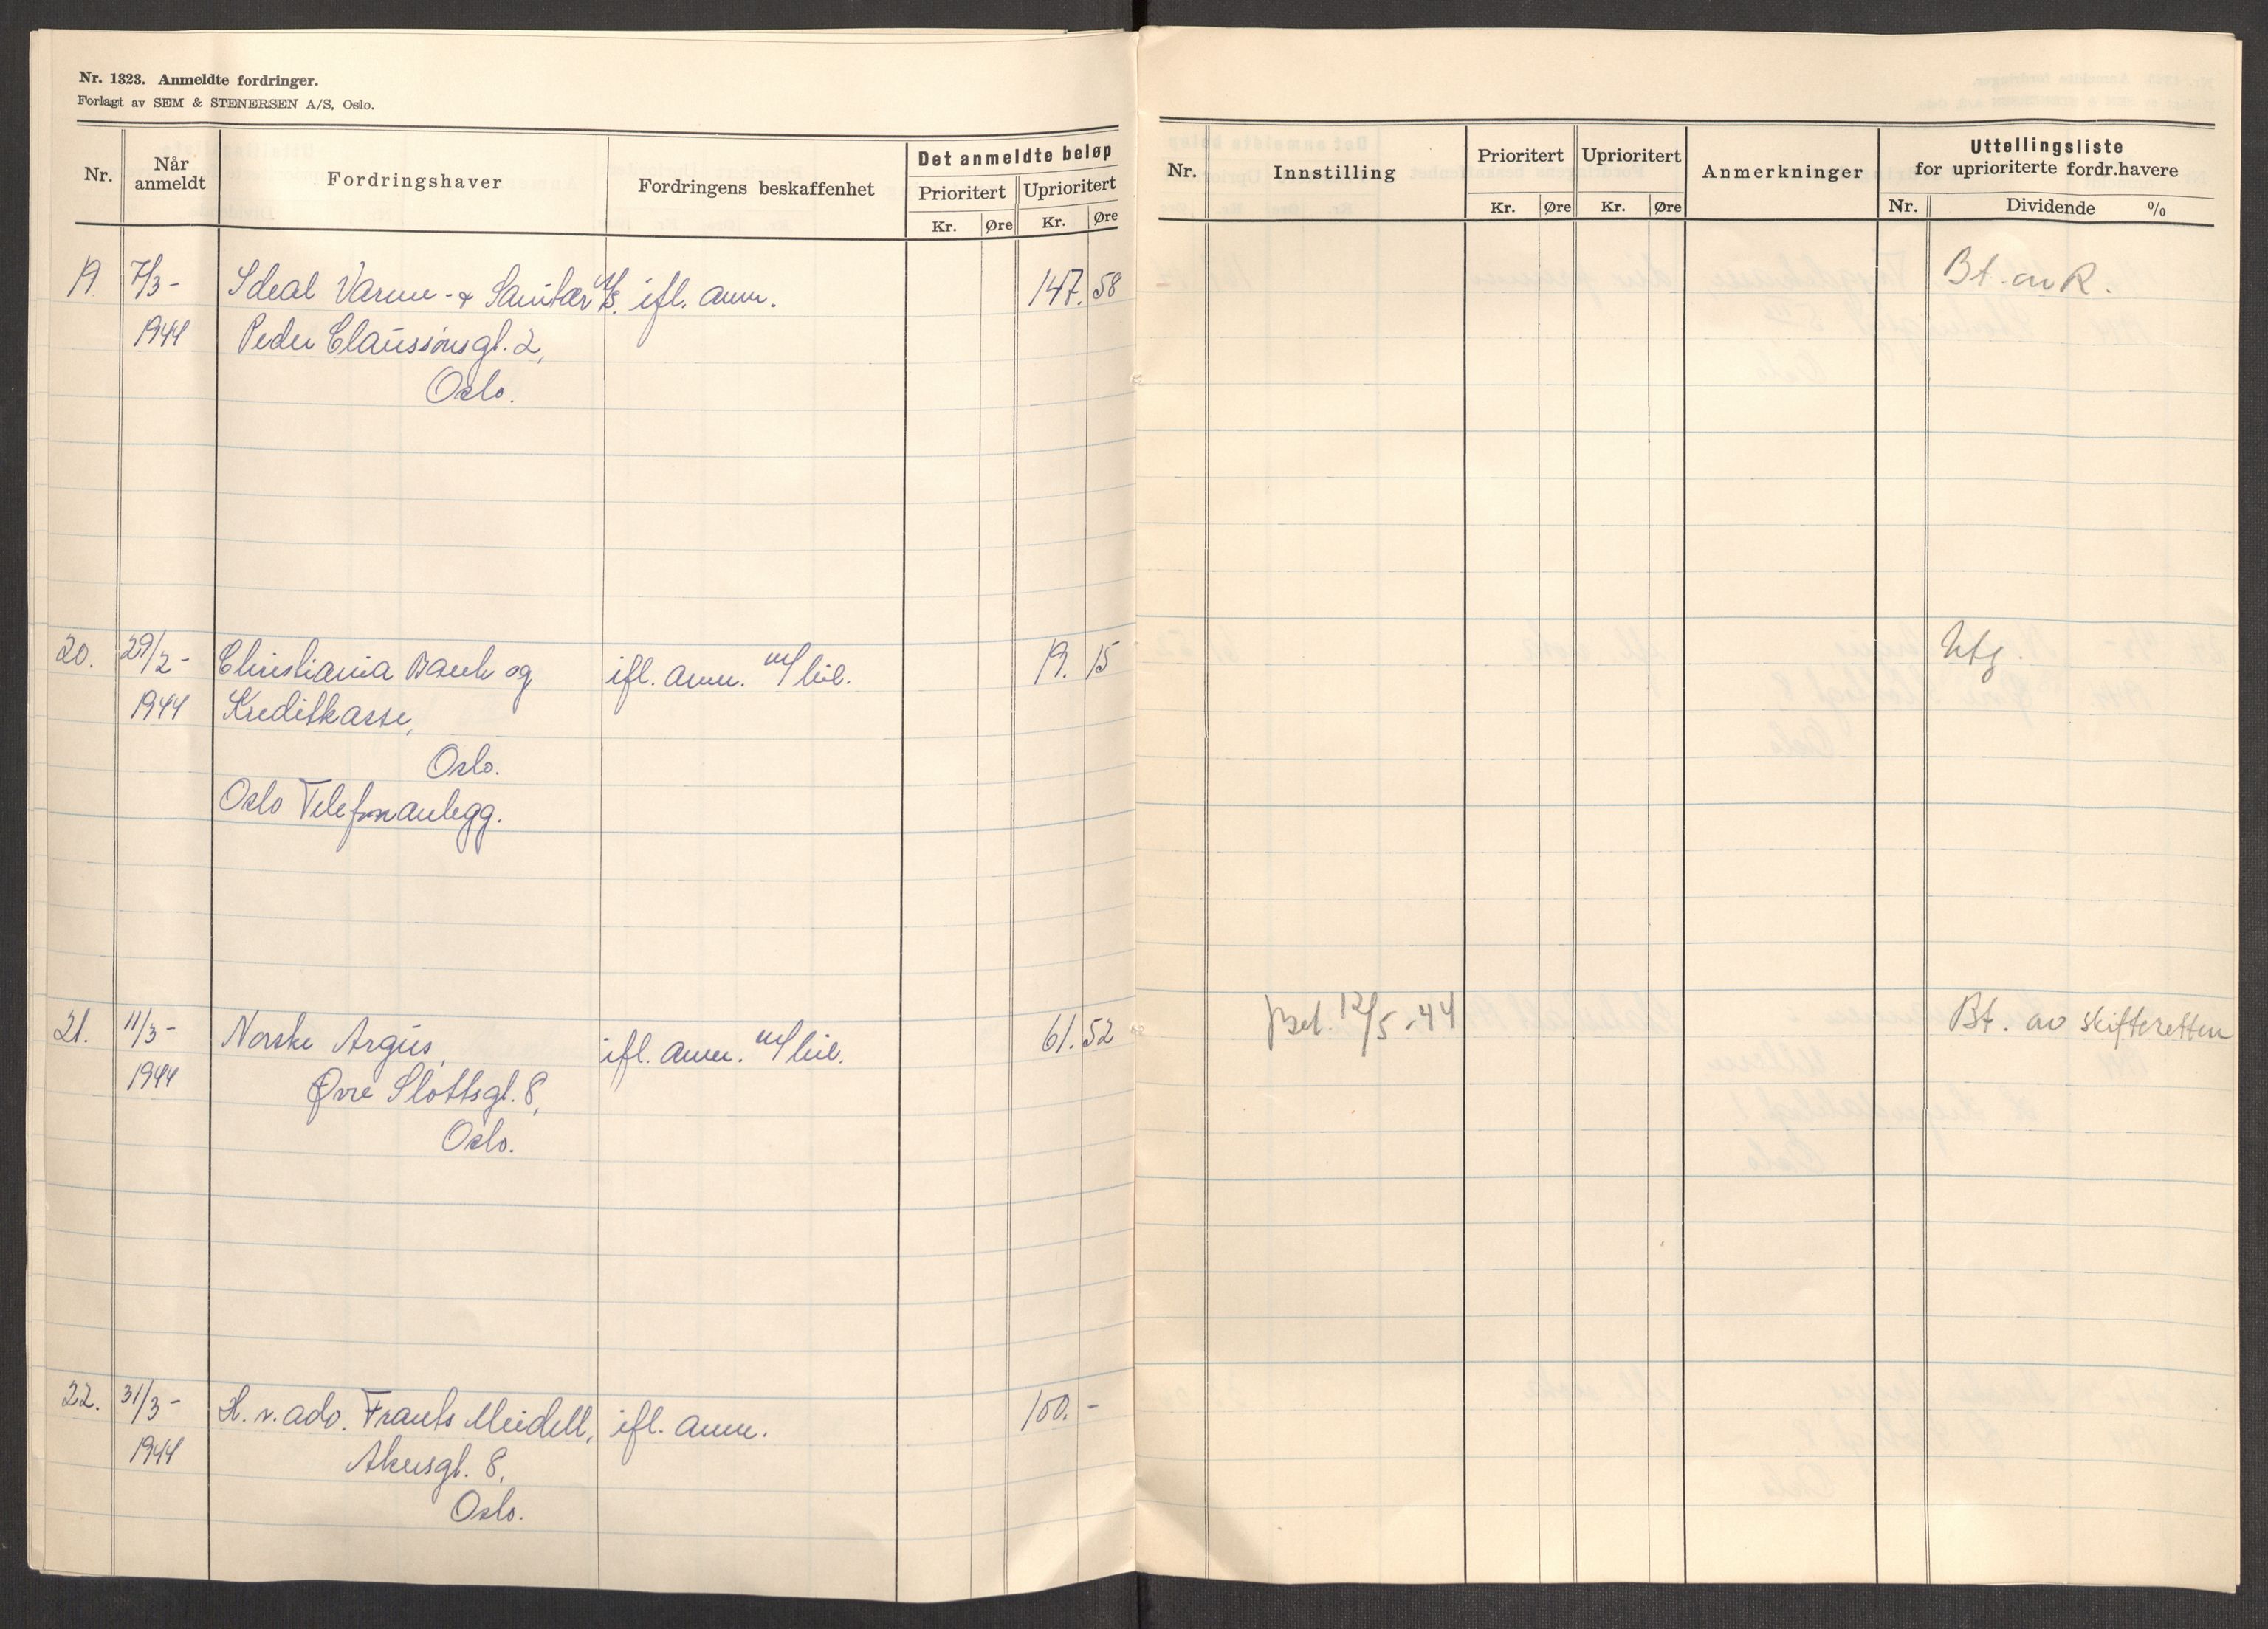 Nr. 1323. Anmeldte fordringer.
Forlagt av SEM & STENERSEN A/S, Oslo.
Nr.
Når anmeldt
Fordringshaver
Fordringens beskaffenhet
Det anmeldte beløp
Prioritert
Uprioritert
Kr. Øre Kr. Øre
Nr.
Innstilling
Prioritert
Uprioritert
Kr. Øre Kr. Øre
Anmerkninger
Uttellingsliste
for uprioriterte fordr.havere
Nr. Dividende %
19 7/3- Ideal Varme- & Sanitær A/S. ifl. anm. 147. 58 Bt. av R.
1944 Peder Claussønsgt. 2,
Oslo.
20. 29/2- Christiania Bank og ifl. anm. m/bil. 19. 15 Utg.
1944 Kreditkasse,
Oslo.
Oslo Telefonanlegg.
21. 11/3- Norske Argus, ifl. anm. m/bil. 61. 52 Bet. 12/5-44 Bt. av skifteretten
1944 Øvre Slottsgt. 8,
Oslo.
22. 31/3- H.r.adv. Frants Meidell, ifl. anm. 100. -
1944 Akersgt. 8,
Oslo.